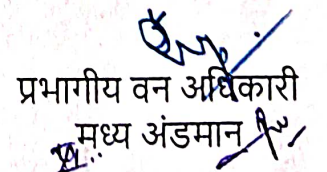 प्रभागीय वन अधिकारी
मध्य अंडमान